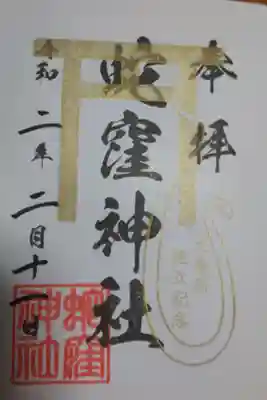 奉拝
蛇窪神社
令和二年二月十一日
蛇窪
神社